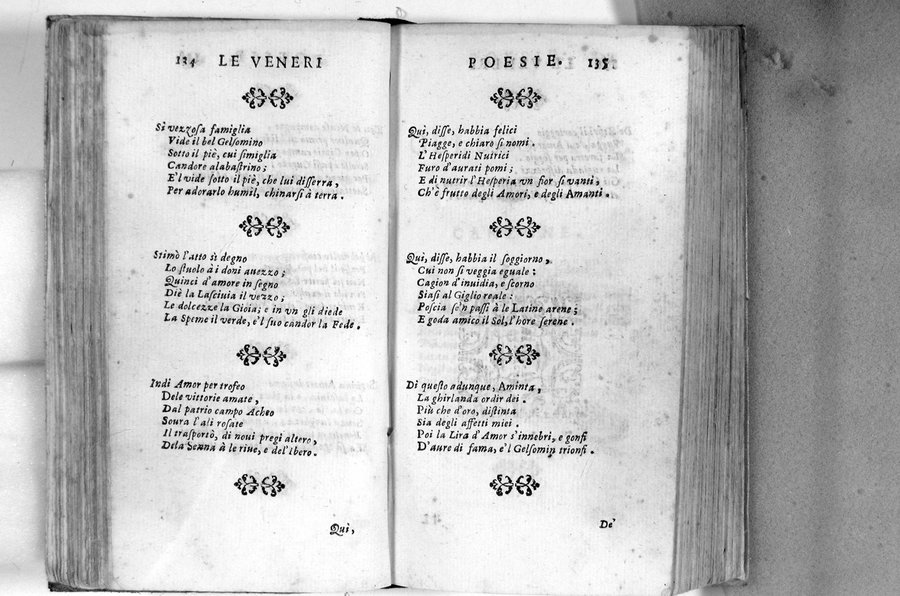 134 LE VENERI
Sì vezzosa famiglia
Vide il bel Gelſomino
Sotto il piè, cui ſimiglia
Candore alabaſtrino;
E'l vide ſotto il piè, che lui diſſerra,
Per adorarlo humil, chinarſi à terra.
Stimò l'atto sì degno
Lo ſtuolo à i doni auezzo;
Quinci d'amore in ſegno
Diè la Laſciuia il vezzo;
Le dolcezze la Gioia; e in vn gli diede
La Speme il verde, e'l ſuo candor la Fede.
Indi Amor per trofeo
Dele vittorie amate,
Dal patrio campo Acheo
Soura l'ali roſate
Il traſportò, di noui pregi altero,
Dela Senna à le riue, e del'Ibero.
Quì,
POESIE. 135
Quì, diſſe, habbia felici
Piagge, e chiaro ſi nomi.
L'Heſperidi Nutrici
Furo d'aurati pomi;
E di nutrir l'Heſperia vn fior ſi vanti,
Ch'è frutto degli Amori, e degli Amanti.
Quì, diſſe, habbia il ſoggiorno,
Cui non ſi veggia eguale:
Cagion d'inuidia, e ſcorno
Siaſi al Giglio reale:
Poſcia ſe'n paſſi à le Latine arene;
E goda amico il Sol, l'hore ſerene.
Di queſto adunque, Aminta,
La ghirlanda ordir dei.
Più che d'oro, diſtinta
Sia degli affetti miei.
Poi la Lira d'Amor s'innebri, e gonfi
D'aure di fama, e'l Gelſomin trionfi.
De'